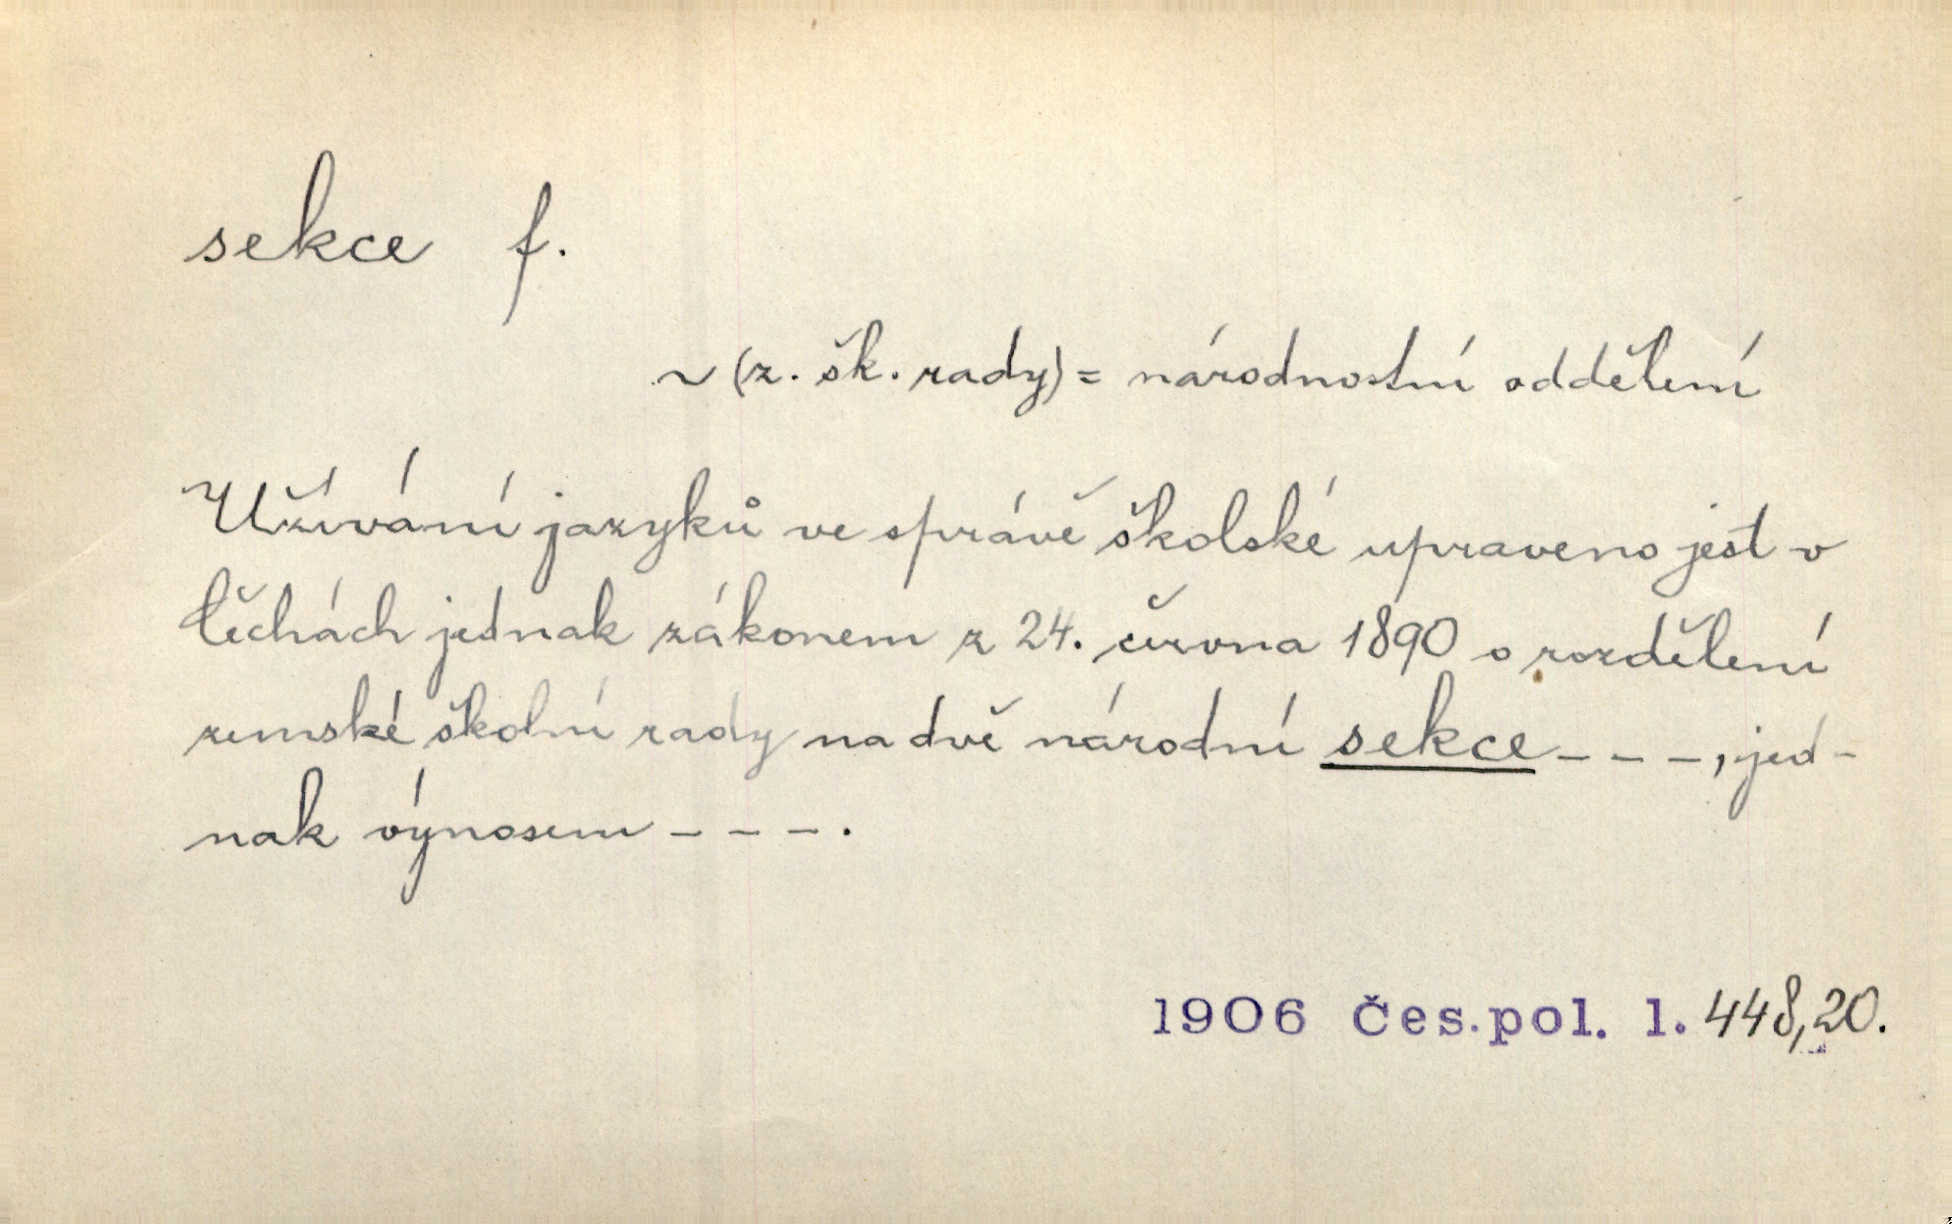 sekce f.
~ (z. šk. rady) = národnostní oddělení
Užívání jazyků ve správě školské upraveno jest v
Čechách jednak zákonem z 24. června 1890 o rozdělení
zemské školní rady na dvě národní sekce _ _ _, jed-
nak výnosem _ _ _.
1906 Čes.pol. l. 448,20.